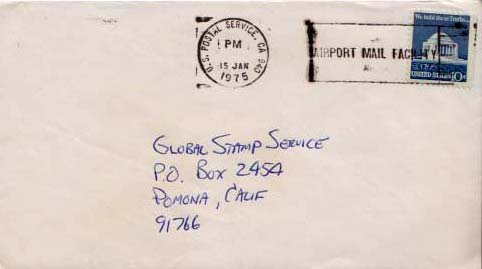 We hold these Truths...
U.S. POSTAL SERVICE, CA 940
PM
15 JAN
1975
AIRPORT MAIL FACILITY
UNITED STATES 10c
GLOBAL STAMP SERVICE
P.O. BOX 2454
POMONA, CALIF
91766